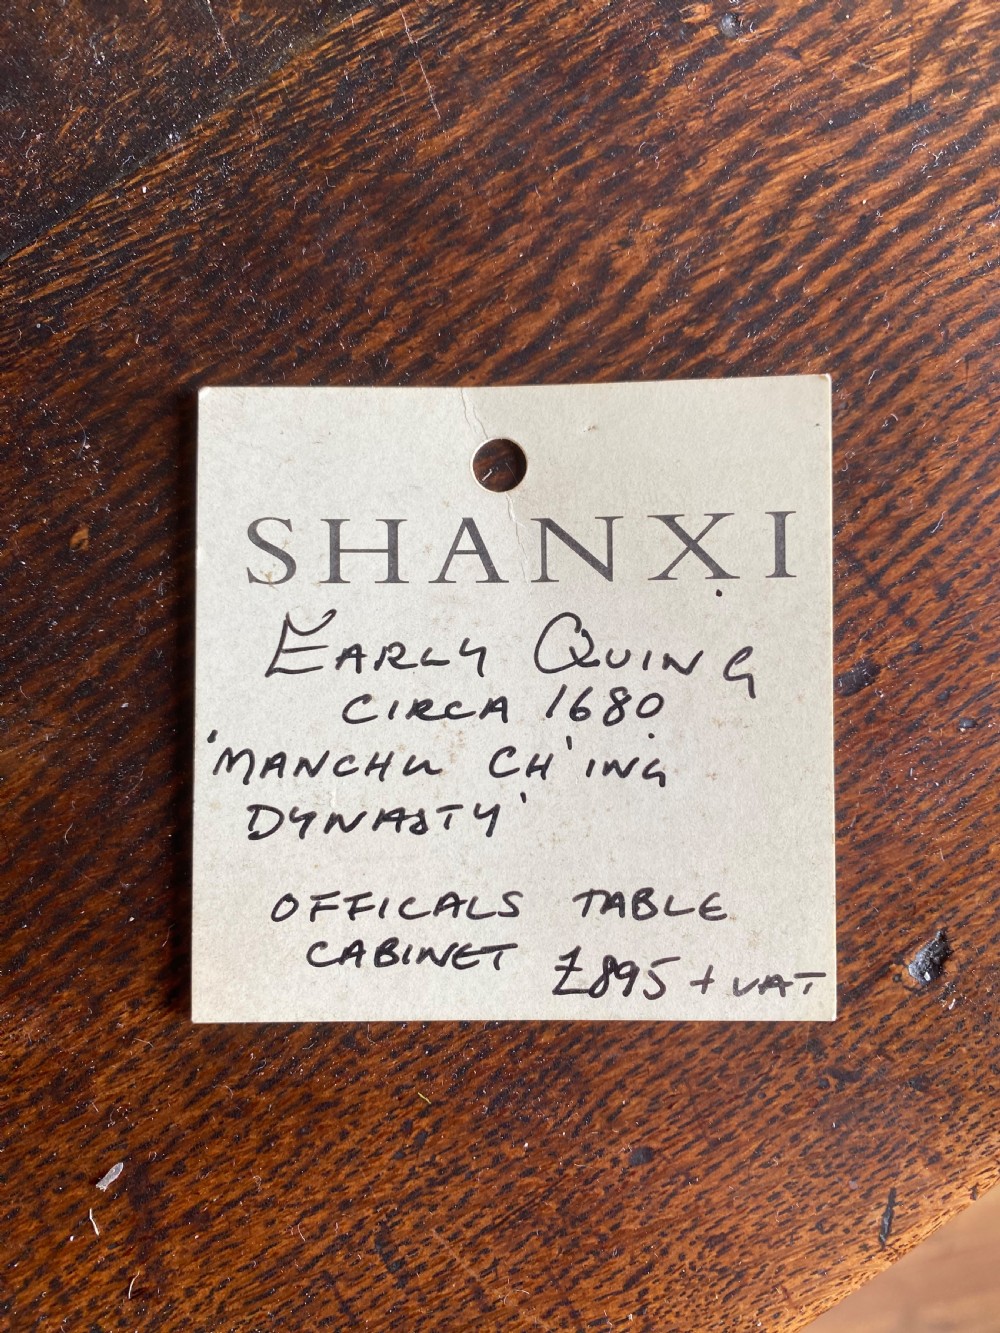 SHANXI
EARLY QUING
CIRCA 1680
'MANCHU CH'ING
DYNASTY'
OFFICALS TABLE
CABINET £895 + VAT